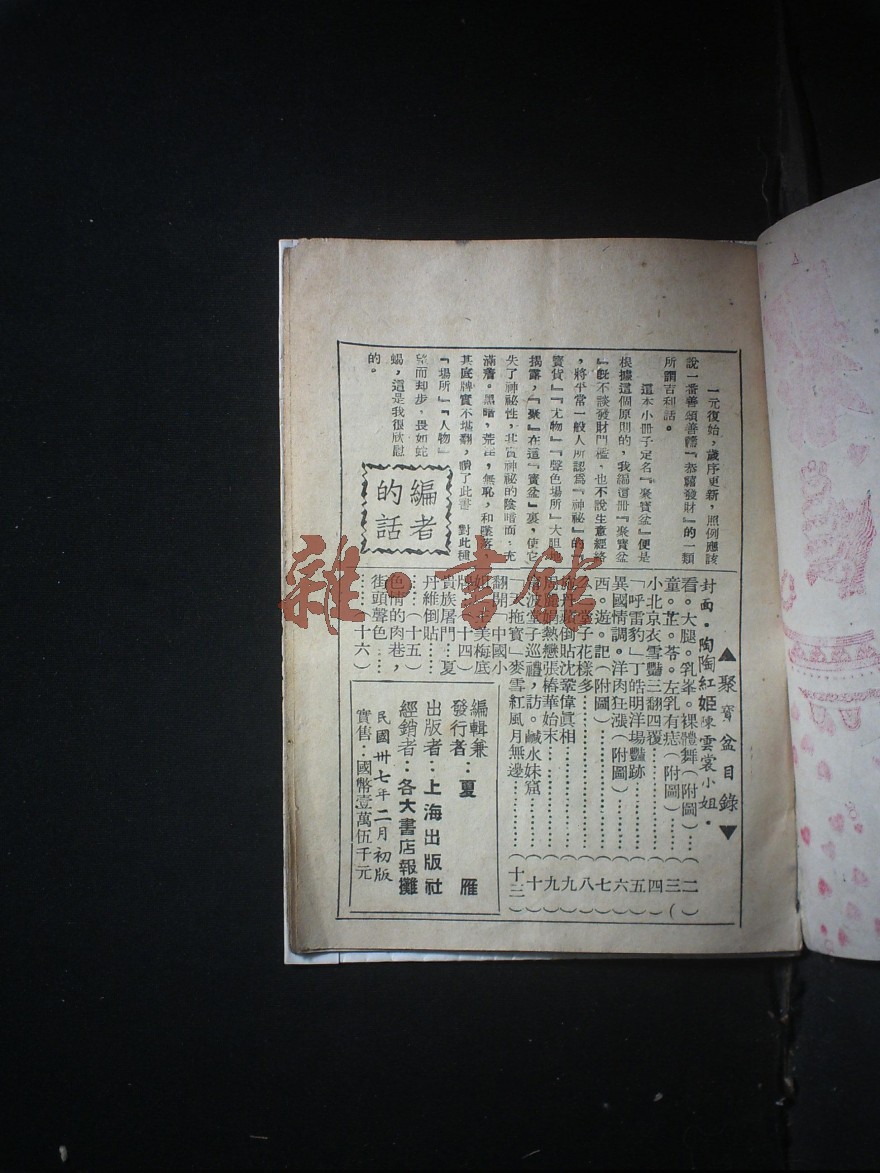 一元復始，歲序更新，照例應該
說一番善頌善禱『恭喜發財』的一類
所謂吉利話。
這本小冊子定名『聚寶盆』便是
根據這個原則的，我編這冊『聚寶盆
』既不談發財門檻，也不說生意經絡
，將平常一般人所認爲『神祕』的『
寶貨』『尤物』『聲色場所』大胆地
揭露，『聚』在這『寶盆』裏，使它
失了神祕性，其實神祕的陰暗面，充
滿着。黑暗，荒淫，無恥，和墮落，
其底牌實不堪翻，讀了此書 對此種
『場所』『人物』
望而却步，畏如蛇
蝎，這是我很欣慰
的。
編者
的話
▲聚寶盆目錄▼
封面。陶陶紅姬陳雲裳小姐．
看。大腿。乳峯。裸體舞（附圖）…（二）
童。芷。苓。左乳有痣（附圖）…三（
小北京衣雪豔三翻四覆…………（四
「呼雷豹」丁皓明洋場豔跡………（五）
異國情調。洋肉狂漲（附圖）……（六
西。遊。記（附圖）………………（七
堂子花樣多…………………（八
倒貼沈鞏偉眞相…………（九
熱戀張椿華始末…………（九
波堂子巡禮，訪。鹹水妹窟…（十
「天拖寶」麥雪紅風月無邊…………（十二）
翻開「中國小
姐」王美梅底
牌……（十四）
貴族屠門——夏
丹維倒貼……
……（十五）
色情的肉巷，
街頭聲色……
……十六）
編輯兼
發行者：夏雁
出版者：上海出版社
經銷者：各大書店報攤
民國卅七年二月初版
實售：國幣壹萬伍千元
雜·書館